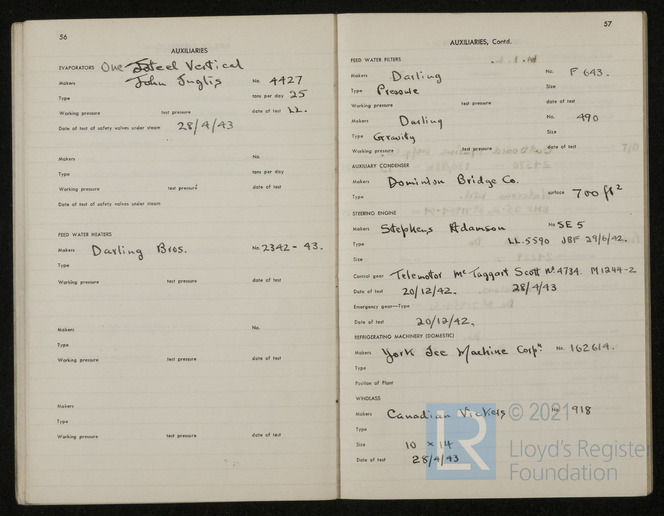 56
AUXILIARIES
EVAPORATORS One Steel Vertical
Makers John Inglis No. 4427
Type tons per day 25
Working pressure test pressure date of test LL.
Date of test of safety valves under steam 28/4/43
Makers No.
Type tons per day
Working pressure test pressure date of test
Date of test of safety valves under steam
FEED WATER HEATERS
Makers Darling Bros. No. 2342-43.
Type
Working pressure test pressure date of test
Makers No.
Type
Working pressure test pressure date of test
Makers
Type
Working pressure test pressure date of test
57
AUXILIARIES, Contd.
FEED WATER FILTERS
Makers Darling No. F 643.
Type Pressure Size
Working pressure test pressure date of test
Makers Darling No. 490
Type Gravity Size
Working pressure test pressure date of test
AUXILIARY CONDENSER
Makers Dominion Bridge Co.
Type surface 700 ft²
STEERING ENGINE
Makers Stephens Adamson No SE 5
Type LL.5590 JBF 29/6/42.
Size
Control gear Telemotor McTaggart Scott No. 4734. M1244-2
Date of test 20/12/42. 28/4/43
Emergency gear—Type
Date of test 20/12/42.
REFRIGERATING MACHINERY (DOMESTIC)
Makers York Ice Machine Corpn. No. 162614.
Type
Position of Plant
WINDLASS
Makers Canadian Vickers No. 918
Type
Size 10 x 14
Date of test 28/4/43
LR © 2021
Lloyd's Register
Foundation